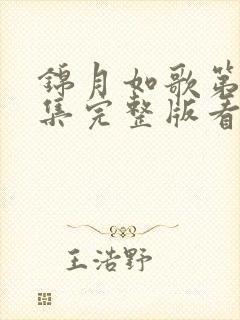 錦月如歌第
集完整版看
王浩野